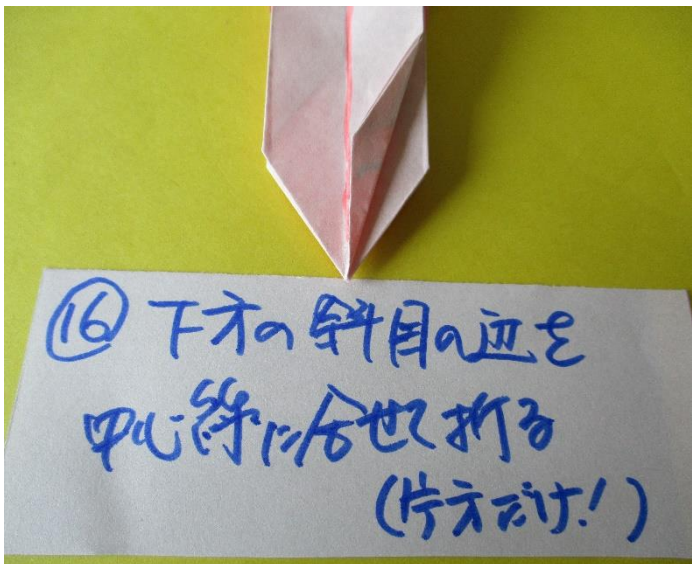 ⑯ 下方の斜目の辺を
中心線に合せて折る
(片方だけ!)